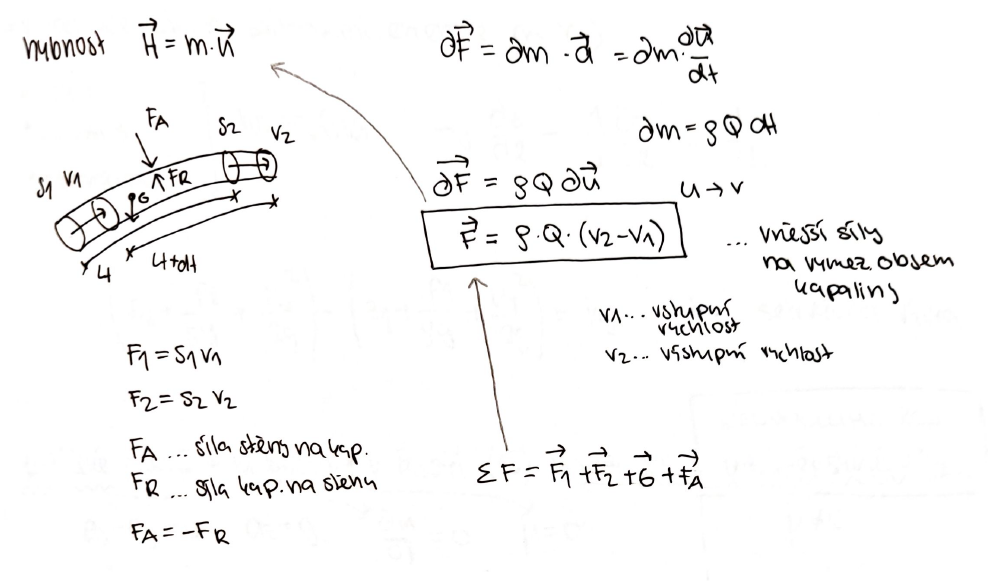 hybnost H⃗ = m·u⃗
∂F⃗ = ∂m · a⃗ = ∂m · ∂u⃗/dt
∂m = ρ Q dt
∂F⃗ = ρ Q ∂u⃗
u → v
F⃗ = ρ · Q · (v2 - v1)
... vnější síly
na vymez. objem
kapaliny
v1 ... vstupní
rychlost
v2 ... výstupní rychlost
FA
S2
v2
S1 v1
FR
G
F1 = S1 v1
F2 = S2 v2
FA ... síla stěny na kap.
FR ... síla kap. na stěnu
FA = -FR
ΣF = F⃗1 + F⃗2 + G⃗ + F⃗A